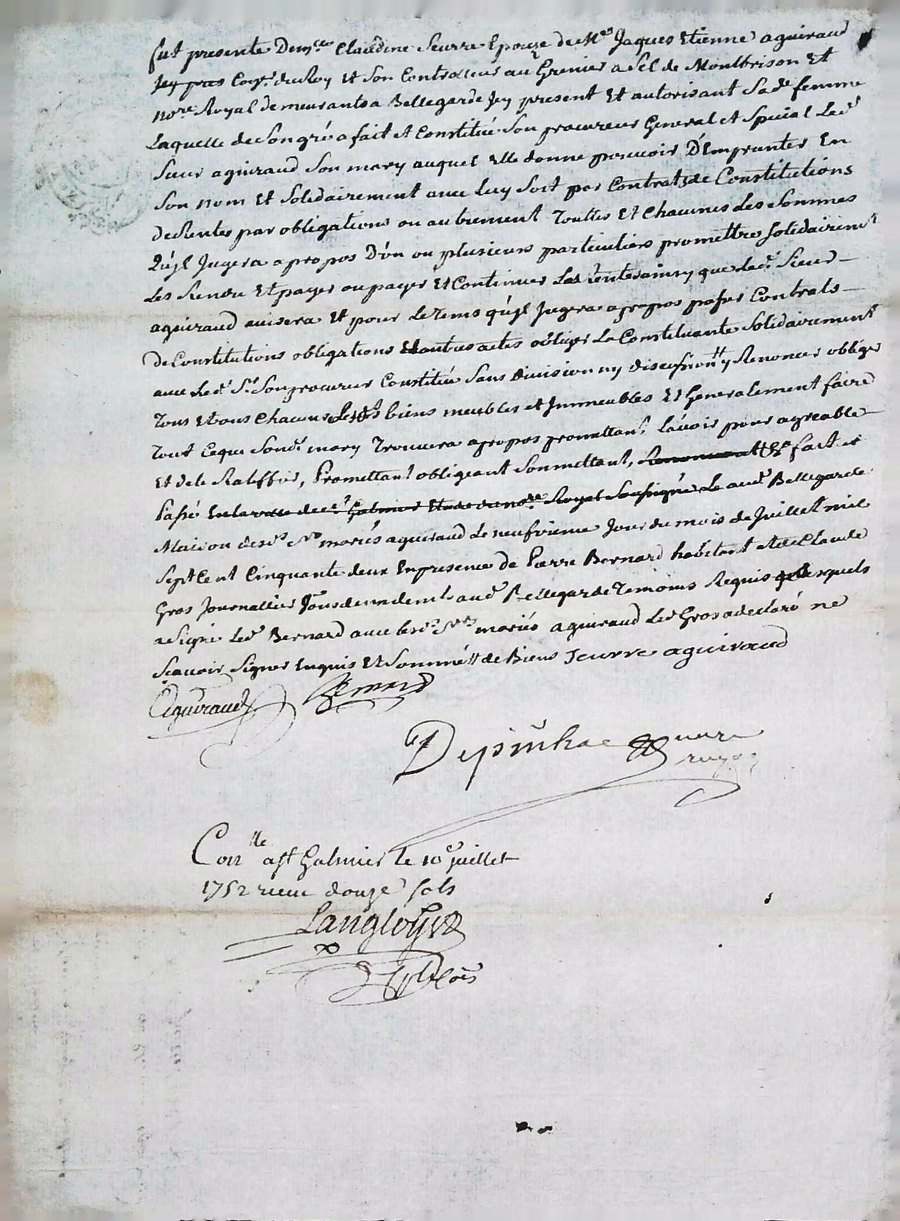 fut presente Dem.lle Claudine Jeurre Epouze de M.e Jaques Etienne aguiraud
Jcy pres Con.er du Roy Et Son Controlleur au Grenier a Sel de Montbrison Et
no.re Royal demeurants a Bellegarde Jcy present Et autorisant Sad.e femme
Laquelle de Son gré a fait et Constitué Son procureur General et Special Led.t
Sieur aguiraud Son mary auquel Elle donne pouvoir D'Emprunter En
Son nom Et Solidairement avec Luy Soit par Contrats de Constitutions
de Rentes par obligations ou autrement Touttes Et Chacunes Les Sommes
Qu'jl Jugera a propos D'un ou plusieurs particuliers promettre Solidairem.t
Les Rendre Et payer ou payer Et Continuer Les rentes ainsy que Led.t Sieur
aguiraud avisera Et pour Le tems qu'jl Jugera a propos passer Contrats
de Constitutions obligations Et autres actes obliger La Constituante Solidairement
avec Led.t S.r Son procureur Constitué Sans Division ny discussion y Renoncer obliger
Tous Et Uns Chacuns Les biens meubles et Jmmeubles Et Generalement faire
Tout Ceque Sond.t mary Trouvera a propos promettant L'avoir pour agreable
Et de le Ratiffier, Promettant obligeant Soumettant, Renonceant &c fait et
Passé En la ville de S.t Galmier Etude du no.re Royal Soussigné Le aud.t Bellegarde
Maison desd.s mariés aguiraud Le neufvieme Jour du mois de Juillet mil
Sept Cent Cinquante deux En presence de Pierre Bernard habitant et de Claude
Gros Journallier Tous deux dem.ts aud.t Bellegarde Temoins Requis desquels
a Signé Led.t Bernard avec lesd.s mariés aguiraud Led.t Gros a declaré ne
Sçavoir Signer Enquis Et Sommé de Biens Jeurre aguiraud
Aguiraud Bernard
Depinhac
Con.lle a S.t Galmier le 10.e juillet
1752 receu douze sols
Langlois